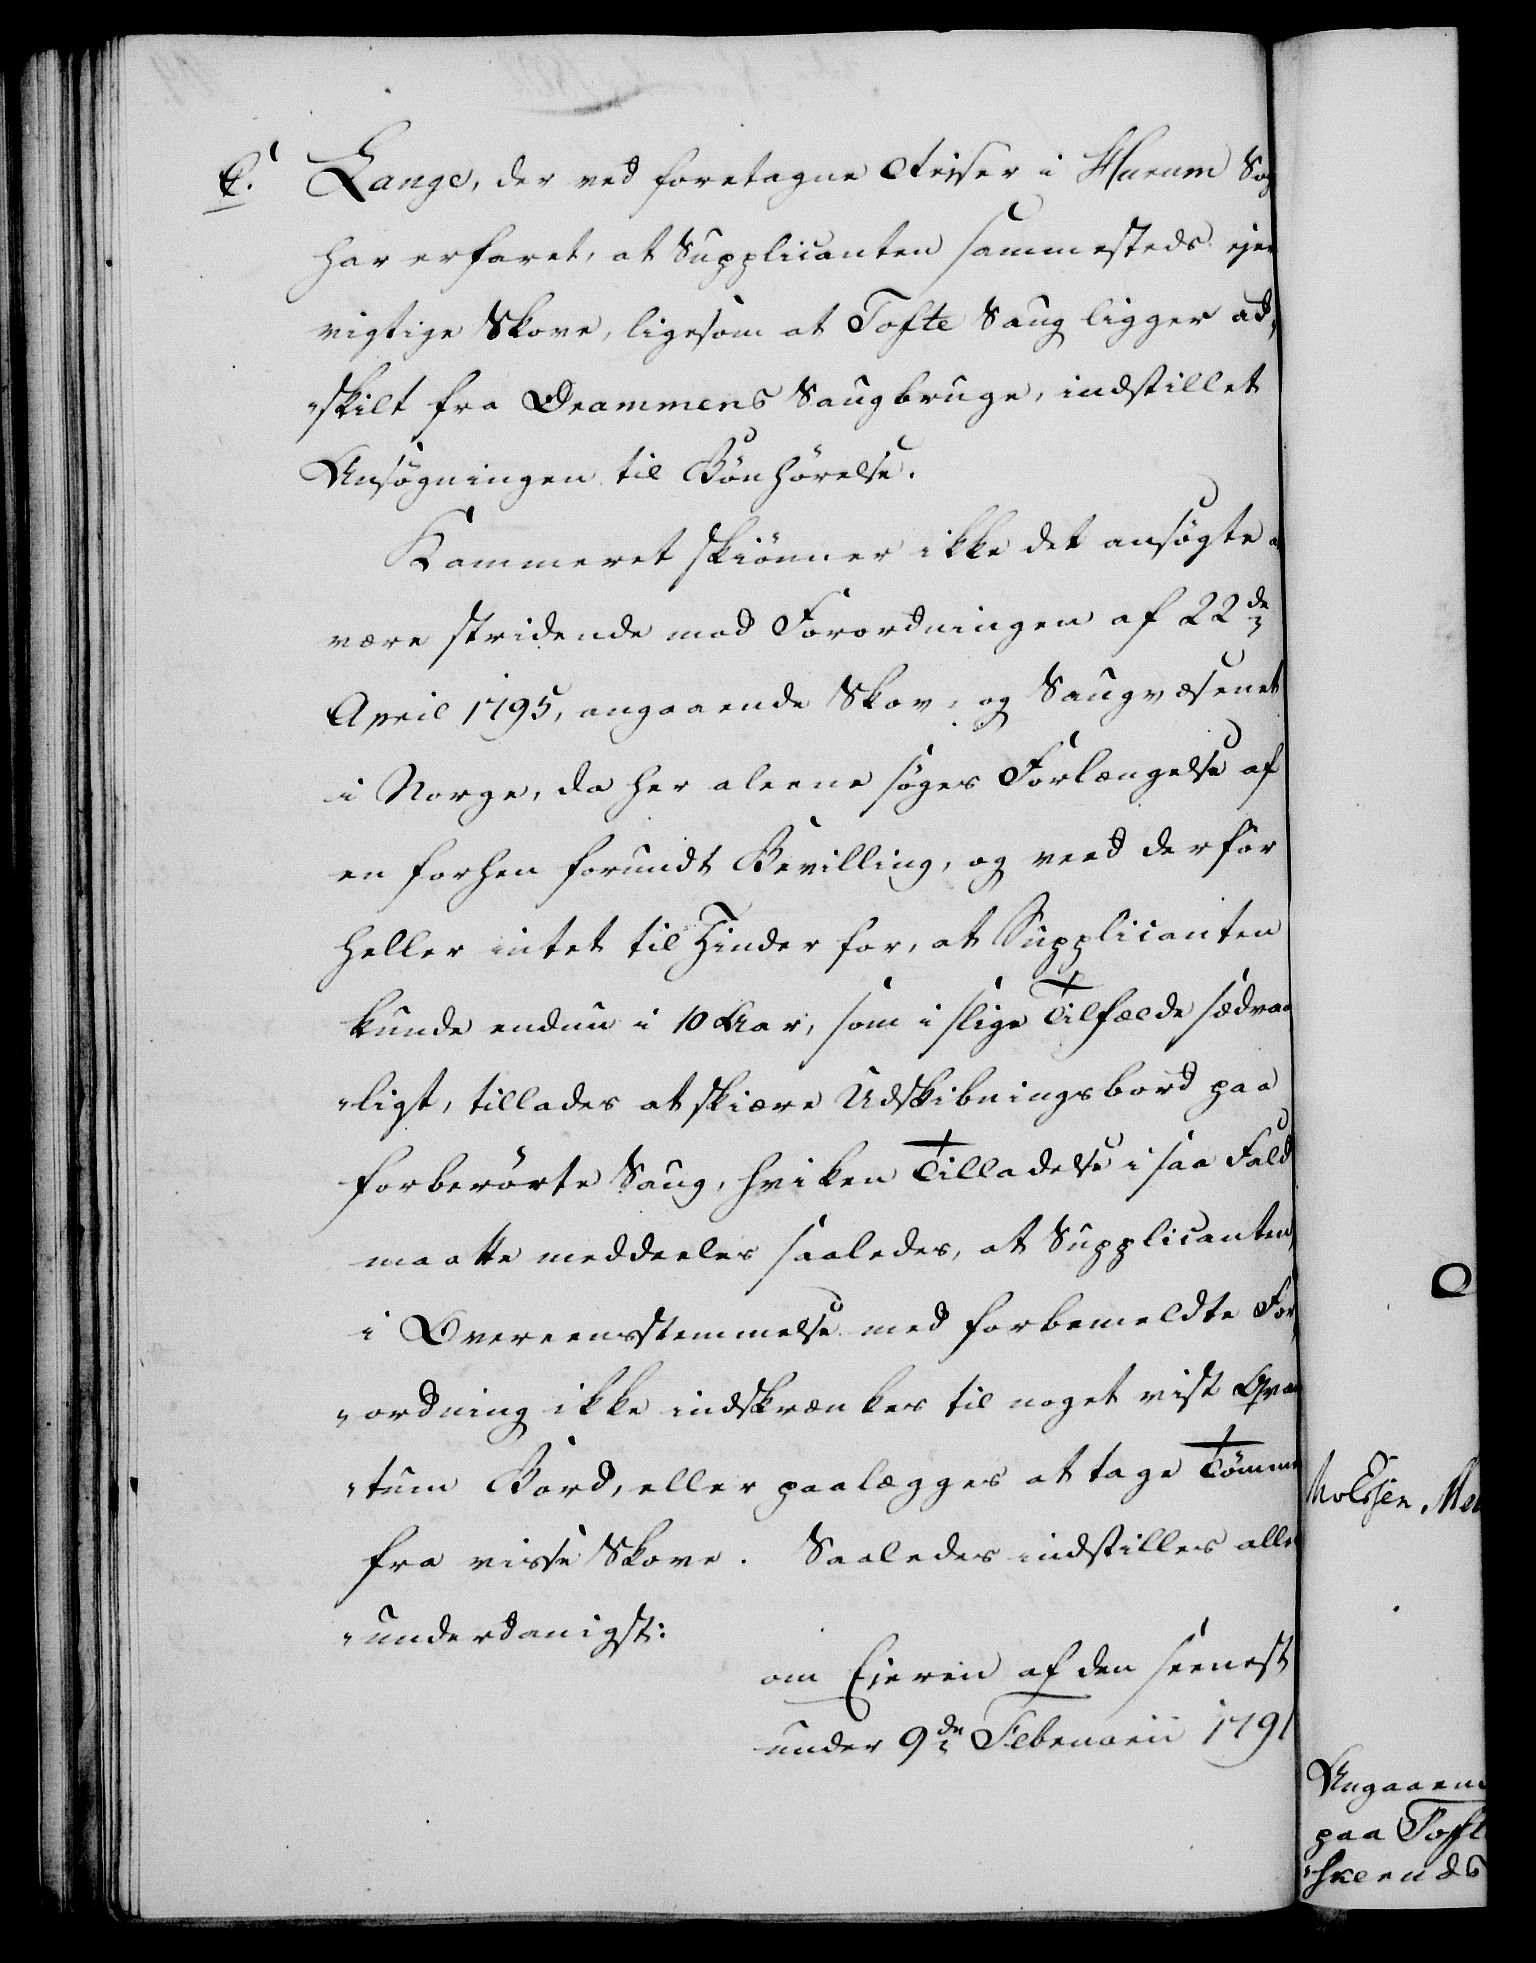 C. Lange, der ved foretagne Reiser i Hurum Sog
har erfaret, at Supplicanten sammesteds ejer
vigtige Skove, ligesom at Tofte Saug ligger ad„
„skilt fra Drammens Saugbruge, indstillet
Ansøgningen til Bønhørelse.
Kammeret skiønner ikke det ansøgte a
være stridende mod Forordningen af 22de
April 1795, angaaende Skov- og Saugvæsenet
i Norge, da her aleene søges Forlængelse af
en forhen forundt Bevilling, og veed derfor
heller intet til Hinder for, at Supplicanten
kunde endnu i 10 Aar, som i slige Tilfælde sædvan
„ligt, tillades at skiære Udskibningsbord paa
forberørte Saug, hvilken Tilladelse i saa Fald
maatte meddeeles saaledes, at Supplicanten,
i Overeensstemmelse med forbemeldte For„
„ordning ikke indskrænkes til noget vist Qvan
„tum Bord, eller paalægges at tage Tømme
fra visse Skove. Saaledes indstilles aller
„underdanigst:
om Ejeren af den seenest
under 9de Februarii 1791
Angaaen
paa Toft